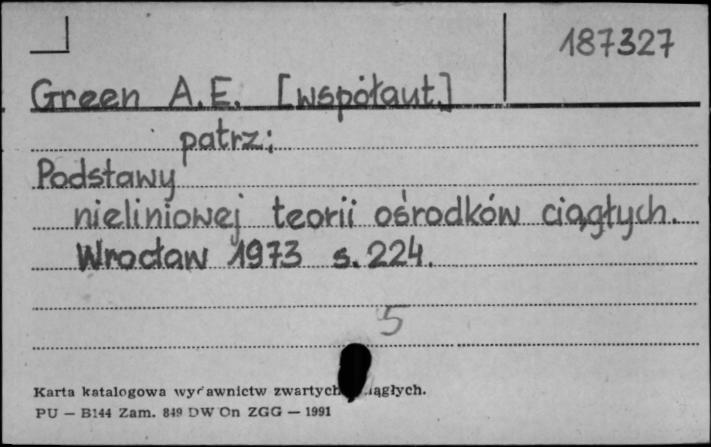 187327
Green A.E. [współaut.]
patrz:
Podstawy
nieliniowej teorii ośrodków ciągłych.
Wrocław 1973 s. 224.
5
Karta katalogowa wydawnictw zwartych
PU — B144 Zam. 849 DW On ZGG — 1991